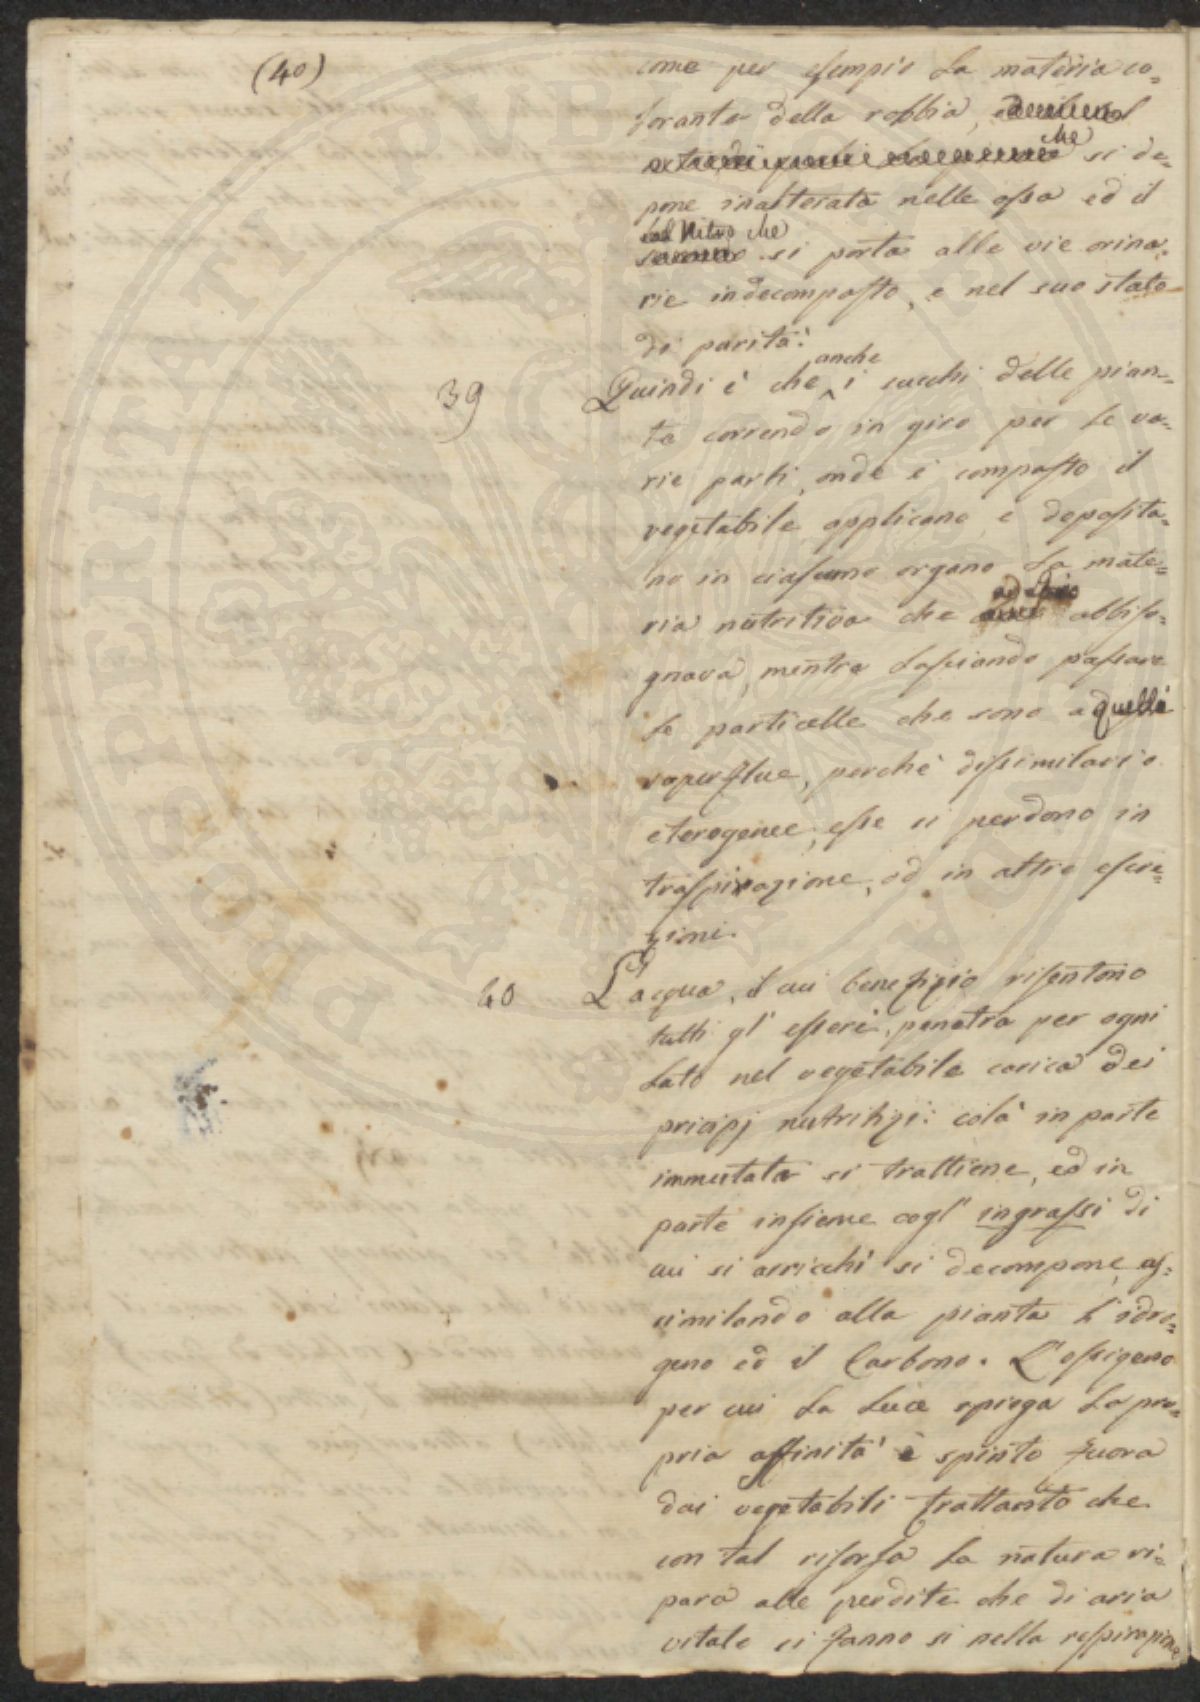 (40)
come per esempio la materia co=
lorante della robbia,
che
si de=
pone inalterata nelle ossa ed il
sal Nitro che
si porta alle vie orina=
rie indecomposto, e nel suo stato
di purità.
anche
39 Quindi è che i succhi delle pian=
te correndo in giro per le va=
rie parti, onde è composto il
vegetabile applicano e deposita=
no in ciascuno organo la mate=
ria nutritiva che abbiso=
gnava, mentre lasciando passare
le particelle che sono a quelle
superflue, perchè dissimilari o
eterogenee, esse si perdono in
traspirazione, od in altre escre=
zioni.
40 L'acqua, il cui benefizio risentono
tutti gl' esseri, penetra per ogni
lato nel vegetabile carica dei
pricipj nutritizj: colà in parte
immutata si trattiene, ed in
parte insieme cogl' ingrassi di
cui si arricchì si decompone, as=
similando alla pianta l'idro=
geno ed il Carbono. L'ossigeno
per cui la luce spiega la pro=
pria affinità è spinto fuora
dai vegetabili trattanto che
con tal risorsa la natura ri=
para alle perdite che di aria
vitale si fanno si nella respirazione
PROSPERITATI PUBLICAE